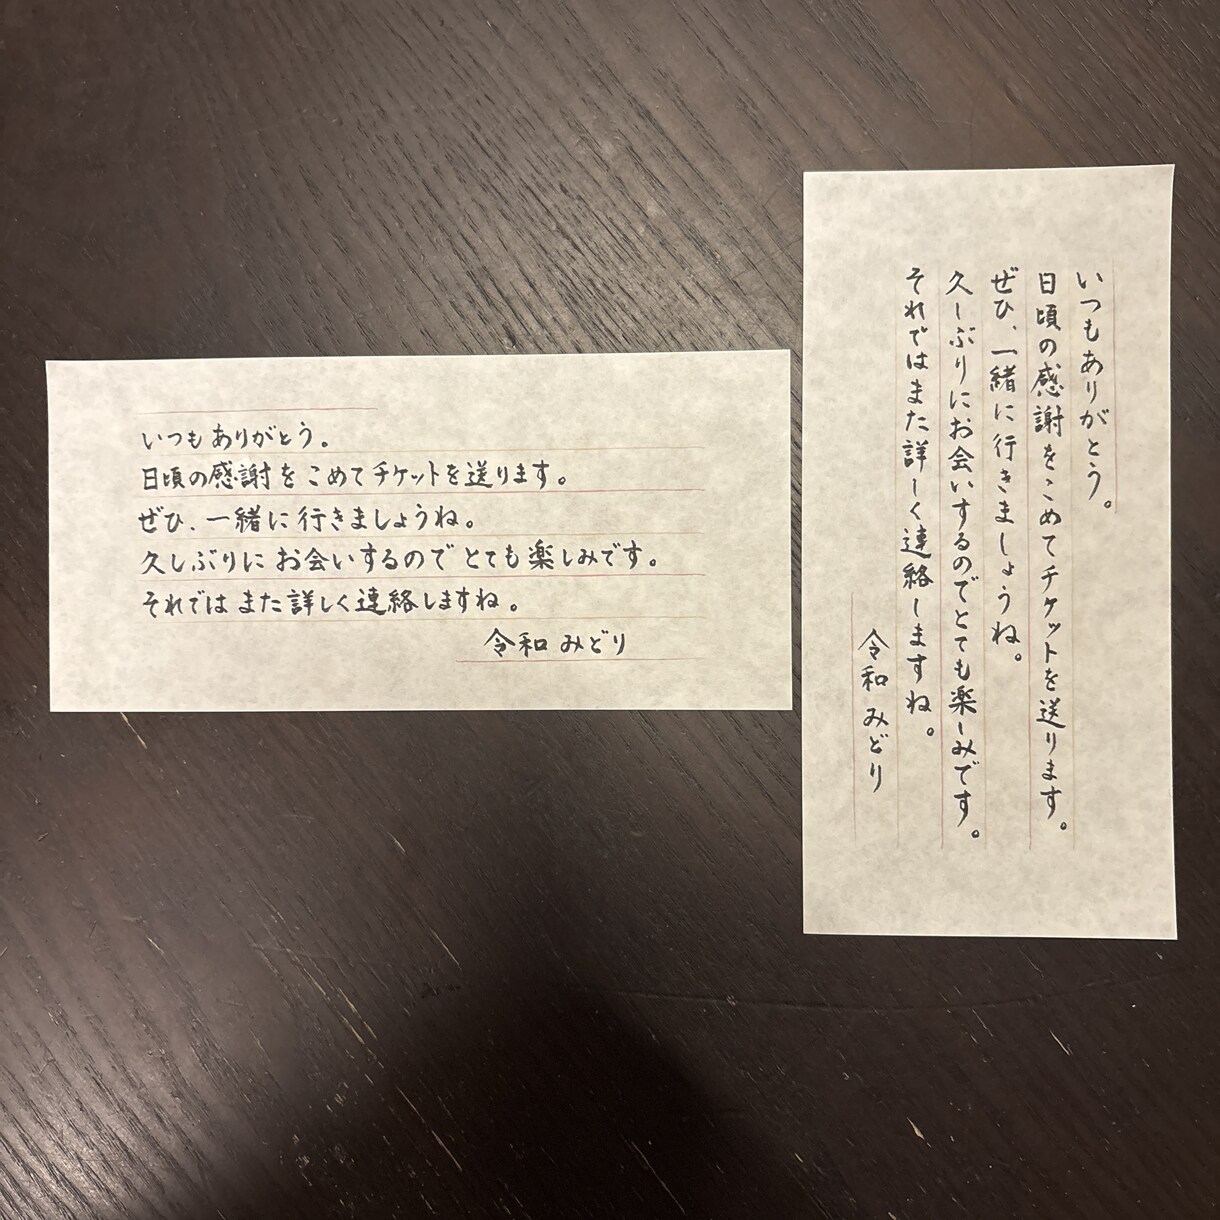 いつもありがとう。
日頃の感謝をこめてチケットを送ります。
ぜひ、一緒に行きましょうね。
久しぶりにお会いするのでとても楽しみです。
それではまた詳しく連絡しますね。
令和みどり
いつもありがとう。
日頃の感謝をこめてチケットを送ります。
ぜひ、一緒に行きましょうね。
久しぶりにお会いするのでとても楽しみです。
それではまた詳しく連絡しますね。
令和みどり